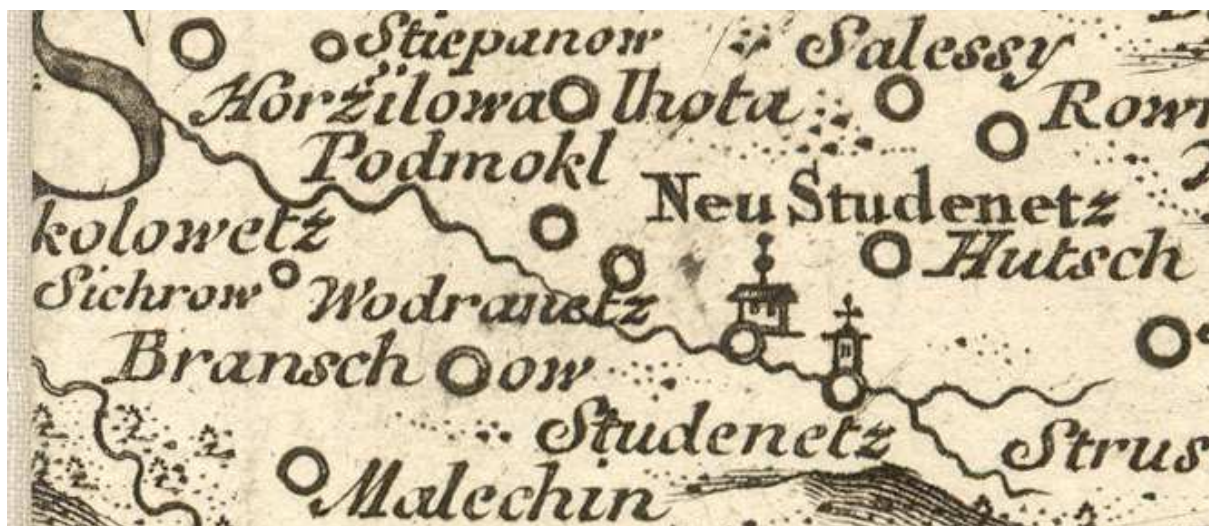 Stiepanow
Salessy
Horžilowa lhota
Rown
Podmokl
Neu Studenetz
kolowetz
Hutsch
Sichrow
Wodranetz
Bransch ow
Studenetz
Strus
Malechin